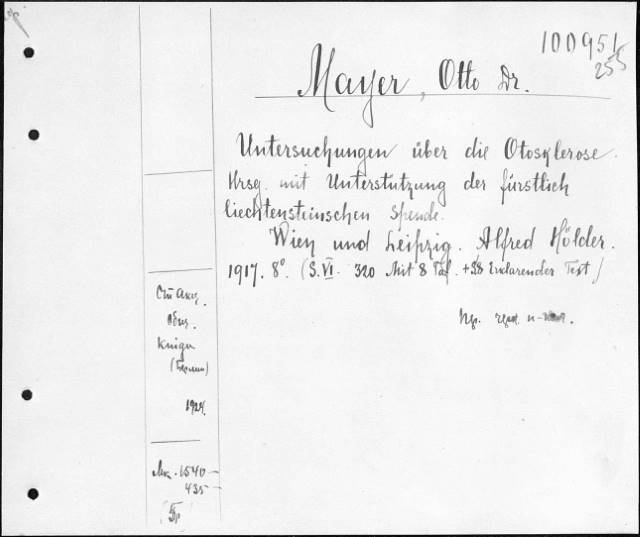 100951
255
Mayer, Otto Dr.
Untersuchungen über die Otosklerose.
Hrsg. mit Unterstützung der fürstlich
liechtensteinschen Spende.
Wien und Leipzig. Alfred Hölder.
1917. 8° (S. VI. 320 Mit 8 Taf. + S8 Erklarender Text)
Книги
1924.
1540 –
435